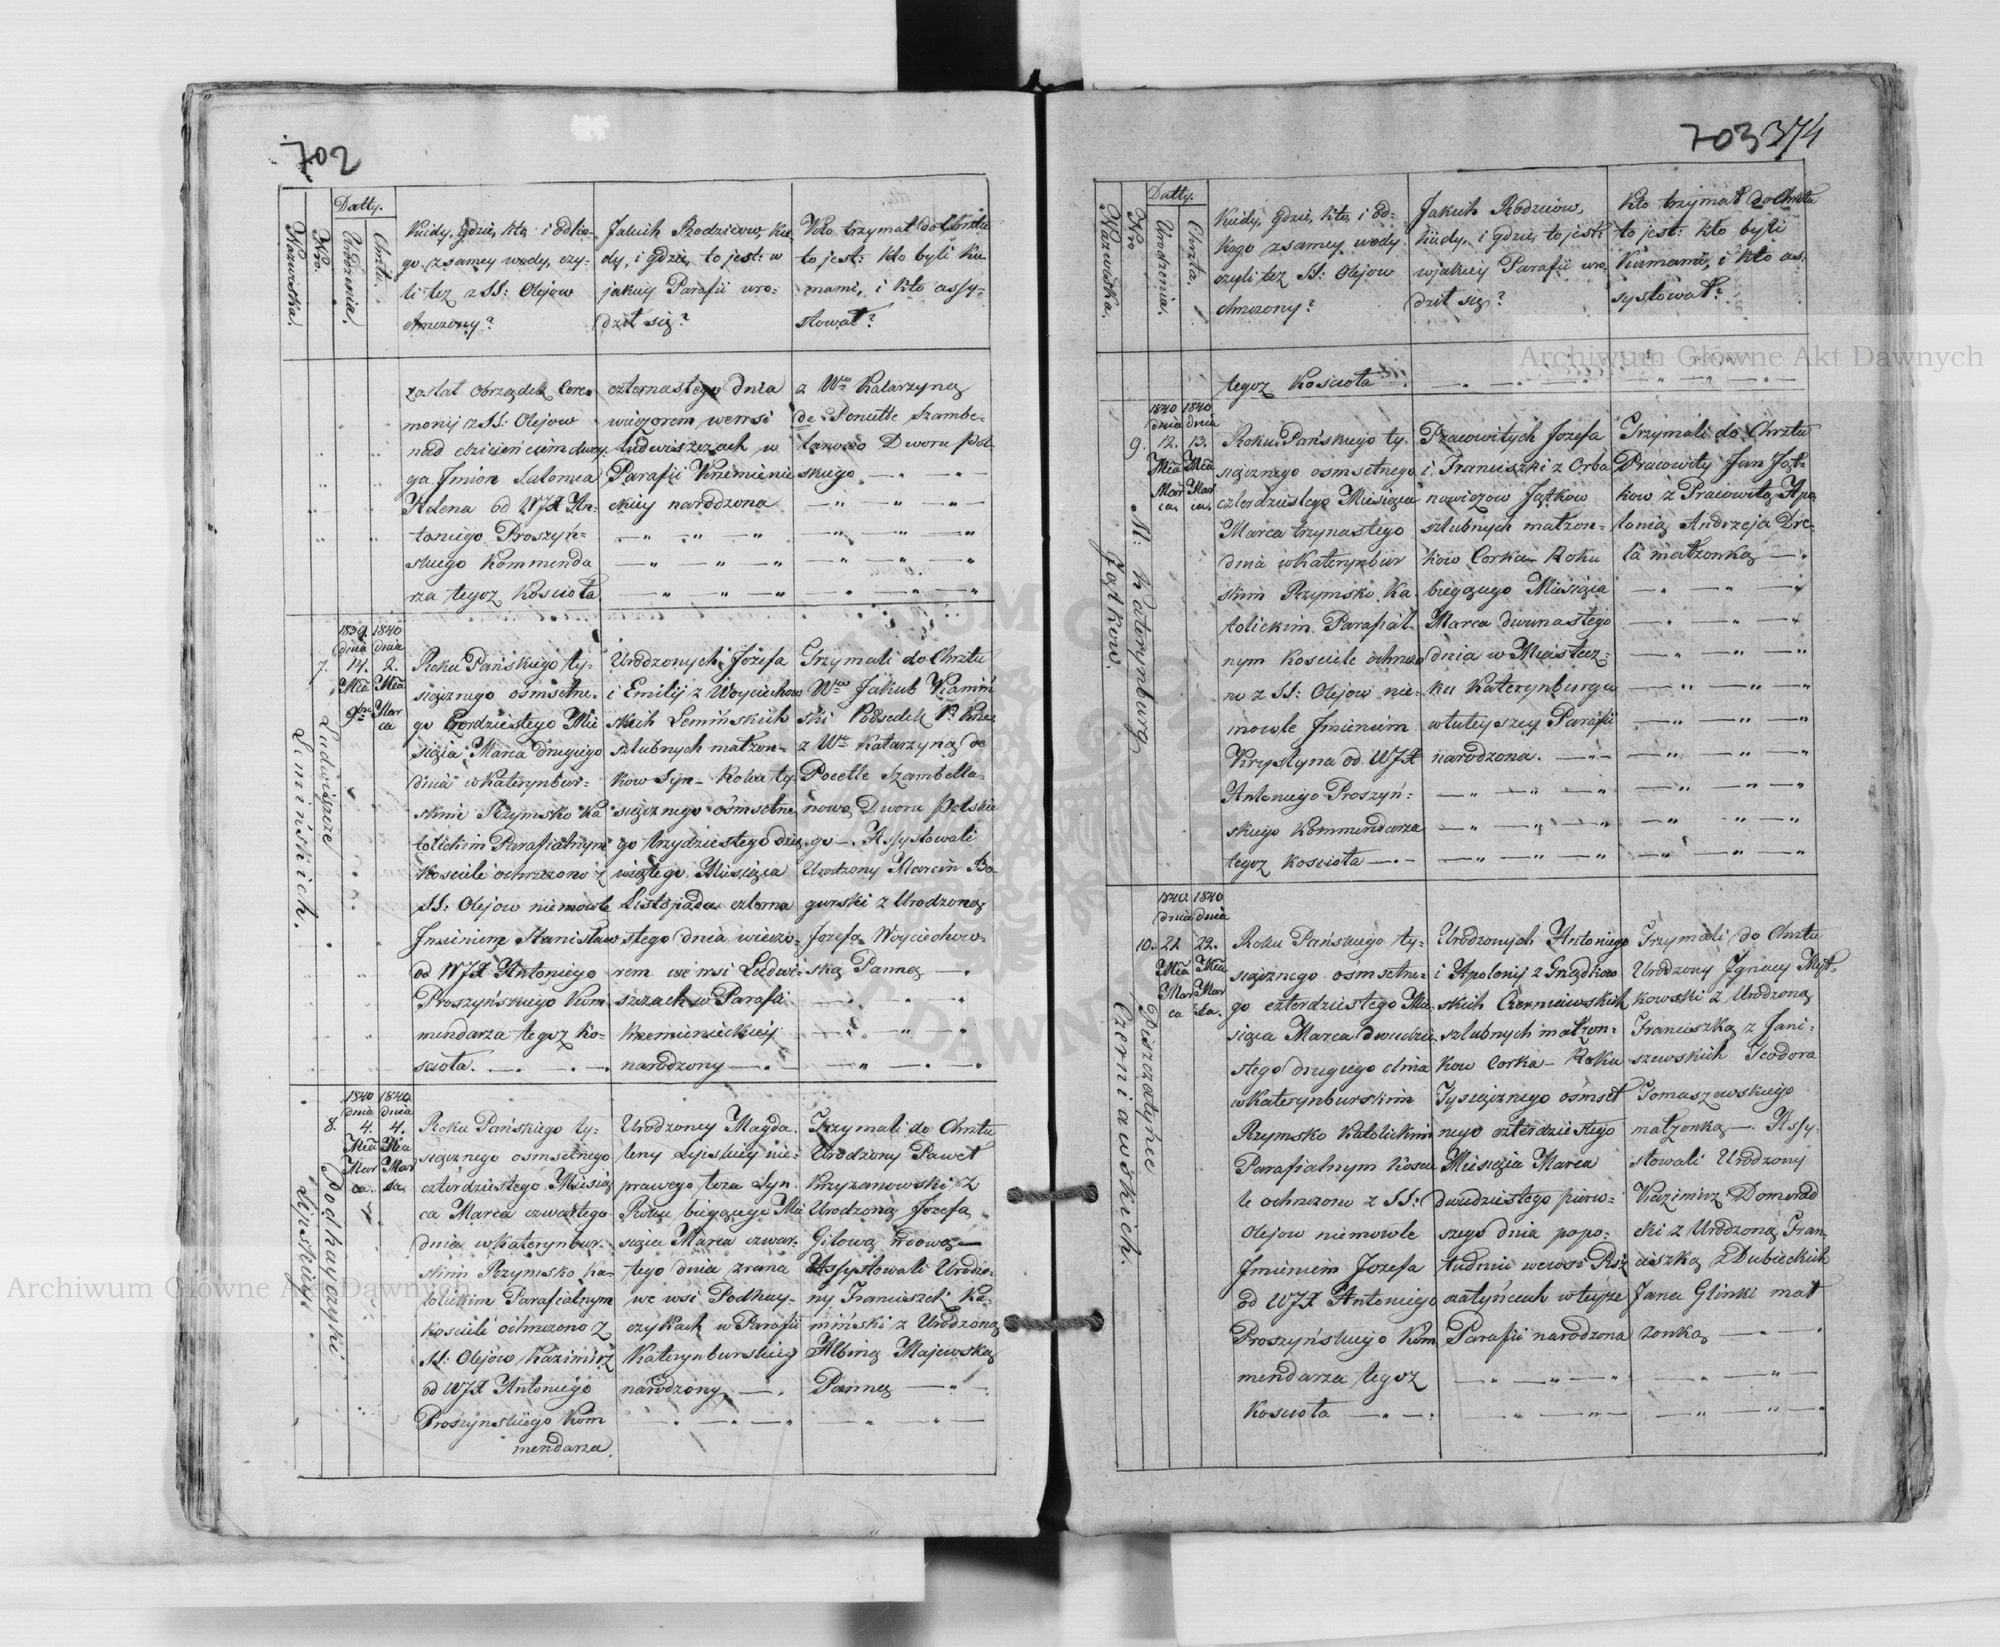 702
Datty.
Nazwiska.
Nro.
Urodzenia.
Chrztu.
Kiedy, gdzie, kto, i od ko-
go, z samey wody, czy-
li też z SS: Olejow
chrzczony?
Jakich Rodziców, kie-
dy, i gdzie, to jest: w
jakiey Parafii uro-
dził się?
Kto trzymał do Chrztu
to jest: kto byli Ku-
mami, i kto assy-
stował?
został obrządek Cere-
monij z SS: Olejow
nad dziecięciem dwoy-
ga Jmion Salomea
Helena od WJX An-
toniego Proszyń-
skiego Kommenda
rza tegoz Kościoła.
czternastego dnia
wieczorem we wsi
Ludwiszczach w
Parafii Krzemienie
ckiey narodzona
z Wną Katarzyną
de Poncitte Szambe-
lanowo Dworu Pol-
skiego
7.
1839
dnia
14.
Mca
9bra
1840
dnia
2.
Mca
Mar
ca
Ludwiszcze
Lemińskich.
Roku Pańskiego ty-
siącznego osmsetne-
go Czerdziestego Mie
siąca Marca drugiego
dnia w Katerynbur-
skim Rzymsko Ka
tolickim Parafialnym
Kosciele ochrzczono z
SS: Olejow niemowle
Jmieniem Stanisław
od WJX Antoniego
Proszyńskiego Kom
mendarza tegoz Ko-
scioła.
Urodzonych Józefa
i Emilij z Woyciechow
skich Lemińskich
szlubnych małzon-
kow Syn - Roku ty-
siącznego ośmsetne
go trzydziestego dzie
wiątego Miesiąca
Listopada czterna
stego dnia wieczo-
rem we wsi Ludwi-
szczach w Parafii
Krzemienieckiey
narodzony
Trzymali do Chrztu
Wny Jakub Kamiń
ski Podsedek
z Wną Katarzyną de
Pocette Szambella-
nową Dworu Polskie
go. Assystowali
Urodzony Marcin Bo
gurski z Urodzoną
Jozefą Woyciechow-
ską Panną
8.
1840
dnia
4.
Mca
Mar
ca.
1840
dnia
4.
Mca
Mar
ca.
Podhayczyki
Lysskiey.
Roku Pańskiego ty-
siącznego osmsetnego
czterdziestego Miesią
ca Marca czwartego
dnia w Katerynbur-
skim Rzymsko Ka-
tolickim Parafialnym
Kosciele ochrzczono z
SS: Olejow Kazimirz
od WJX Antoniego
Proszynskiego Kom
mendarza
Urodzoney Magda-
leny Lysskiey nie-
prawego łoza Syn
Roku bieżącego Mie
siąca Marca czwar-
tego dnia zrana
we wsi Podhay-
czykach w Parafii
Katerynburskiey
narodzony
Trzymali do Chrztu
Urodzony Paweł
Krzyzanowski z
Urodzoną Jozefą
Gilową wdową
Assystowali Urodzo-
ny Franciszek Ka-
mieński z Urodzoną
Albiną Majewską
Panną
703 374
Datty.
Nazwiska.
Nro
Urodzenia.
Chrzta.
Kiedy, gdzie, kto, i od-
kogo z samey wody
czyli tez z SS: Olejow
chrzczony?
Jakich Rodziców,
kiedy, i gdzie, to jest:
w jakiey Parafii uro-
dził się?
Kto trzymał do Chrztu
to jest: kto byli
Kumami, i kto as-
systował?
tegoz Kościoła
9.
1840
dnia
12.
Mca
Mar
ca.
1840
dnia
13.
Mca
Mar
ca.
M: Katerynburg
Jątkow.
Roku Pańskiego ty-
siącznego osmsetnego
czterdziestego Miesiąca
Marca trzynastego
dnia w Katerynbur
skim Rzymsko Ka
tolickim Parafial-
nym Kosciele ochrzczo
no z SS: Olejow nie-
mowle Jmieniem
Krystyna od WJX
Antoniego Proszyń-
skiego Kommendarza
tegoz Kosciola
Pracowitych Jozefa
i Franciszki z Orba
nowiczow Jątkow
szlubnych małzon-
kow Corka Roku
bieżącego Miesiąca
Marca dwunastego
dnia w Miastecz-
ku Katerynburgu
w tuteyszey Parafii
narodzona.
Trzymali do Chrztu
Pracowity Jan Jąt-
kow z Pracowitą Apo
lonią Andrzeja Dre-
la małzonką
10.
1840
dnia
21
Mca
Mar
ca
1840
dnia
22.
Mca
Mar
ca.
Rszczatynce
Czerniawskich.
Roku Pańskiego ty-
siącznego osmsetne-
go czterdziestego Mie-
siąca Marca dwudzie-
stego drugiego dnia
w Katerynburskim
Rzymsko Katolickim
Parafialnym Koscie
le ochrzczono z SS:
Olejow niemowle
Jmieniem Jozefa
od WJX Antoniego
Proszyńskiego Kom
mendarza tegoz
Kosciola
Urodzonych Antoniego
i Apolonij z Gnądkow
skich Czerniawskich
szlubnych małzon-
kow Corka - Roku
Tysiącznego osmset
nego czterdziestego
Miesiąca Marca
dwudziestego pierw-
szego dnia popo-
łudniu we wsi Rsz
czatyńcach w tuteysze
Parafii narodzona
Trzymali do Chrztu
Urodzony Jgnacy Myt-
kowski z Urodzoną
Franciszką z Jani-
szewskich Teodora
Tomaszewskiego
małzonką. Assy-
stowali Urodzony
Kazimirz Domorad
cki z Urodzoną Fran-
ciszką z Dubieckich
Jana Glinki mał
zonką
Archiwum Główne Akt Dawnych
Archiwum Główne Akt Dawnych